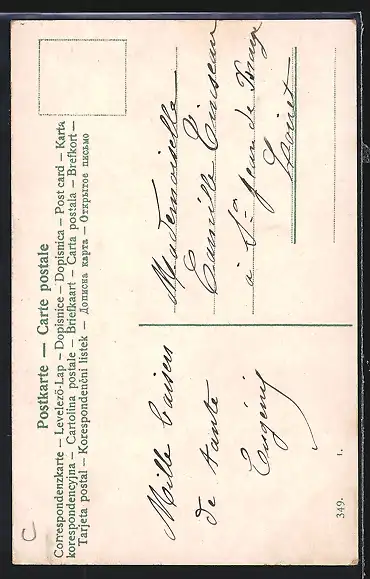 Postkarte — Carte postale
Correspondenzkarte — Levelező-Lap — Dopisnice — Dopisnica — Post card — Karta
korespondencyjna — Cartolina postale — Briefkaart — Carta postala — Brefkort —
Tarjeta postal — Korespondenční listek — Дописна карта — Открытое письмо
Mille baisers
de tante
Eugénie
Mademoiselle
Camille Cuiseau
à St Jean de Braye
Loiret
349.
1.
C